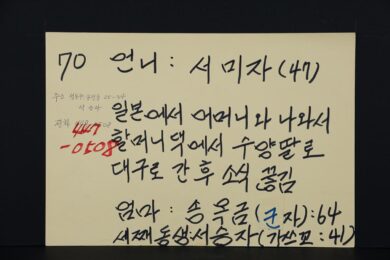 70 언니: 서미자(47)
주소
447
-0508
일본에서 어머니와 나와서
할머니댁에서 수양딸로
대구로 간 후 소식 끊김
엄마: 송옥금(군자):64
세째동생:서승자(가쓰꼬:41)